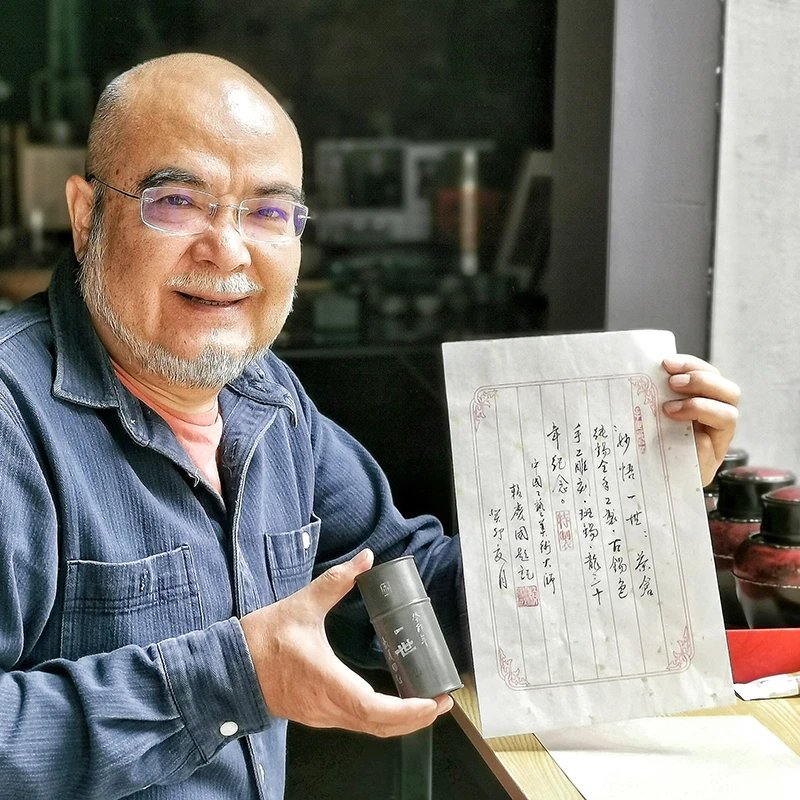 「妙悟一世」：茶倉
純錫全手工製·古錫色
手工雕刻·斑錫·龍三十
年紀念。
中国工藝美術大師
赖慶国題記
癸卯亥月
一世